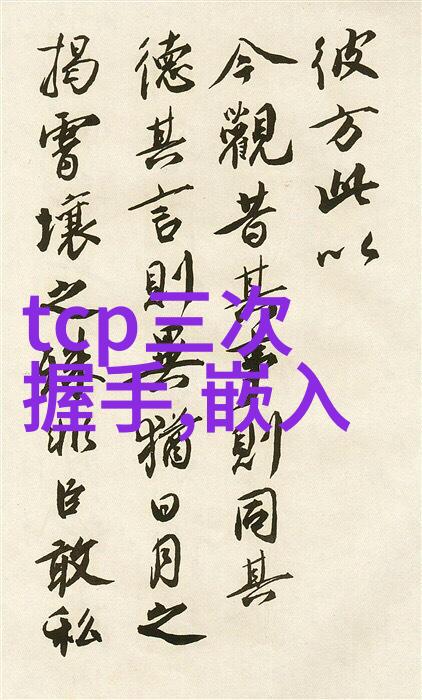 彼方此以
今觀昔其事則同其
德其言則異猶日月之
揭霄壤之非臣敢私
tcp三次
握手,嵌入